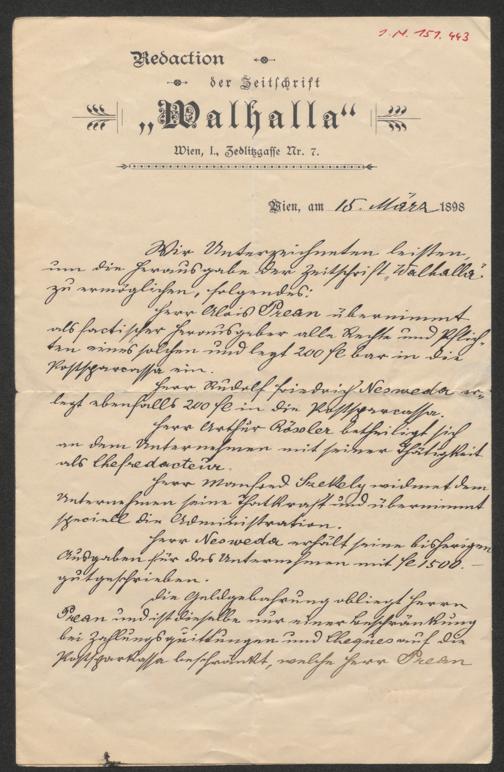 I.N. 151.443
Redaction
der Zeitschrift
„Walhalla“
Wien, I., Zedlitzgasse Nr. 7.
Wien, am 15. März 1898
Wir Unterzeichneten leisten,
um die Herausgabe der Zeitschrift „Walhalla“
zu ermöglichen, folgendes:
Herr Alois Prean übernimmt
als factischer Herausgeber alle Rechte und Pflich-
ten eines solchen und legt 200 fl bar in die
Postsparcassa ein.
Herr Rudolf Friedrich Nesweda er-
legt ebenfalls 200 fl in die Postsparcassa.
Herr Arthur Rössler betheiligt sich
an dem Unternehmen mit seiner Thätigkeit
als Chefredacteur.
Herr Manfred Szekely widmet dem
Unternehmen seine Thatkraft und übernimmt
speciell die Administration.
Herr Nesweda erhält seine bisherigen
Ausgaben für das Unternehmen mit fl 1500.–
gutgeschrieben.
Die Geldgebahrung obliegt Herrn
Prean und ist dieselbe nur einer Beschränkung
bei Zahlungsquittungen und Cheques auf die
Postsparkassa beschränkt, welche Herr Prean